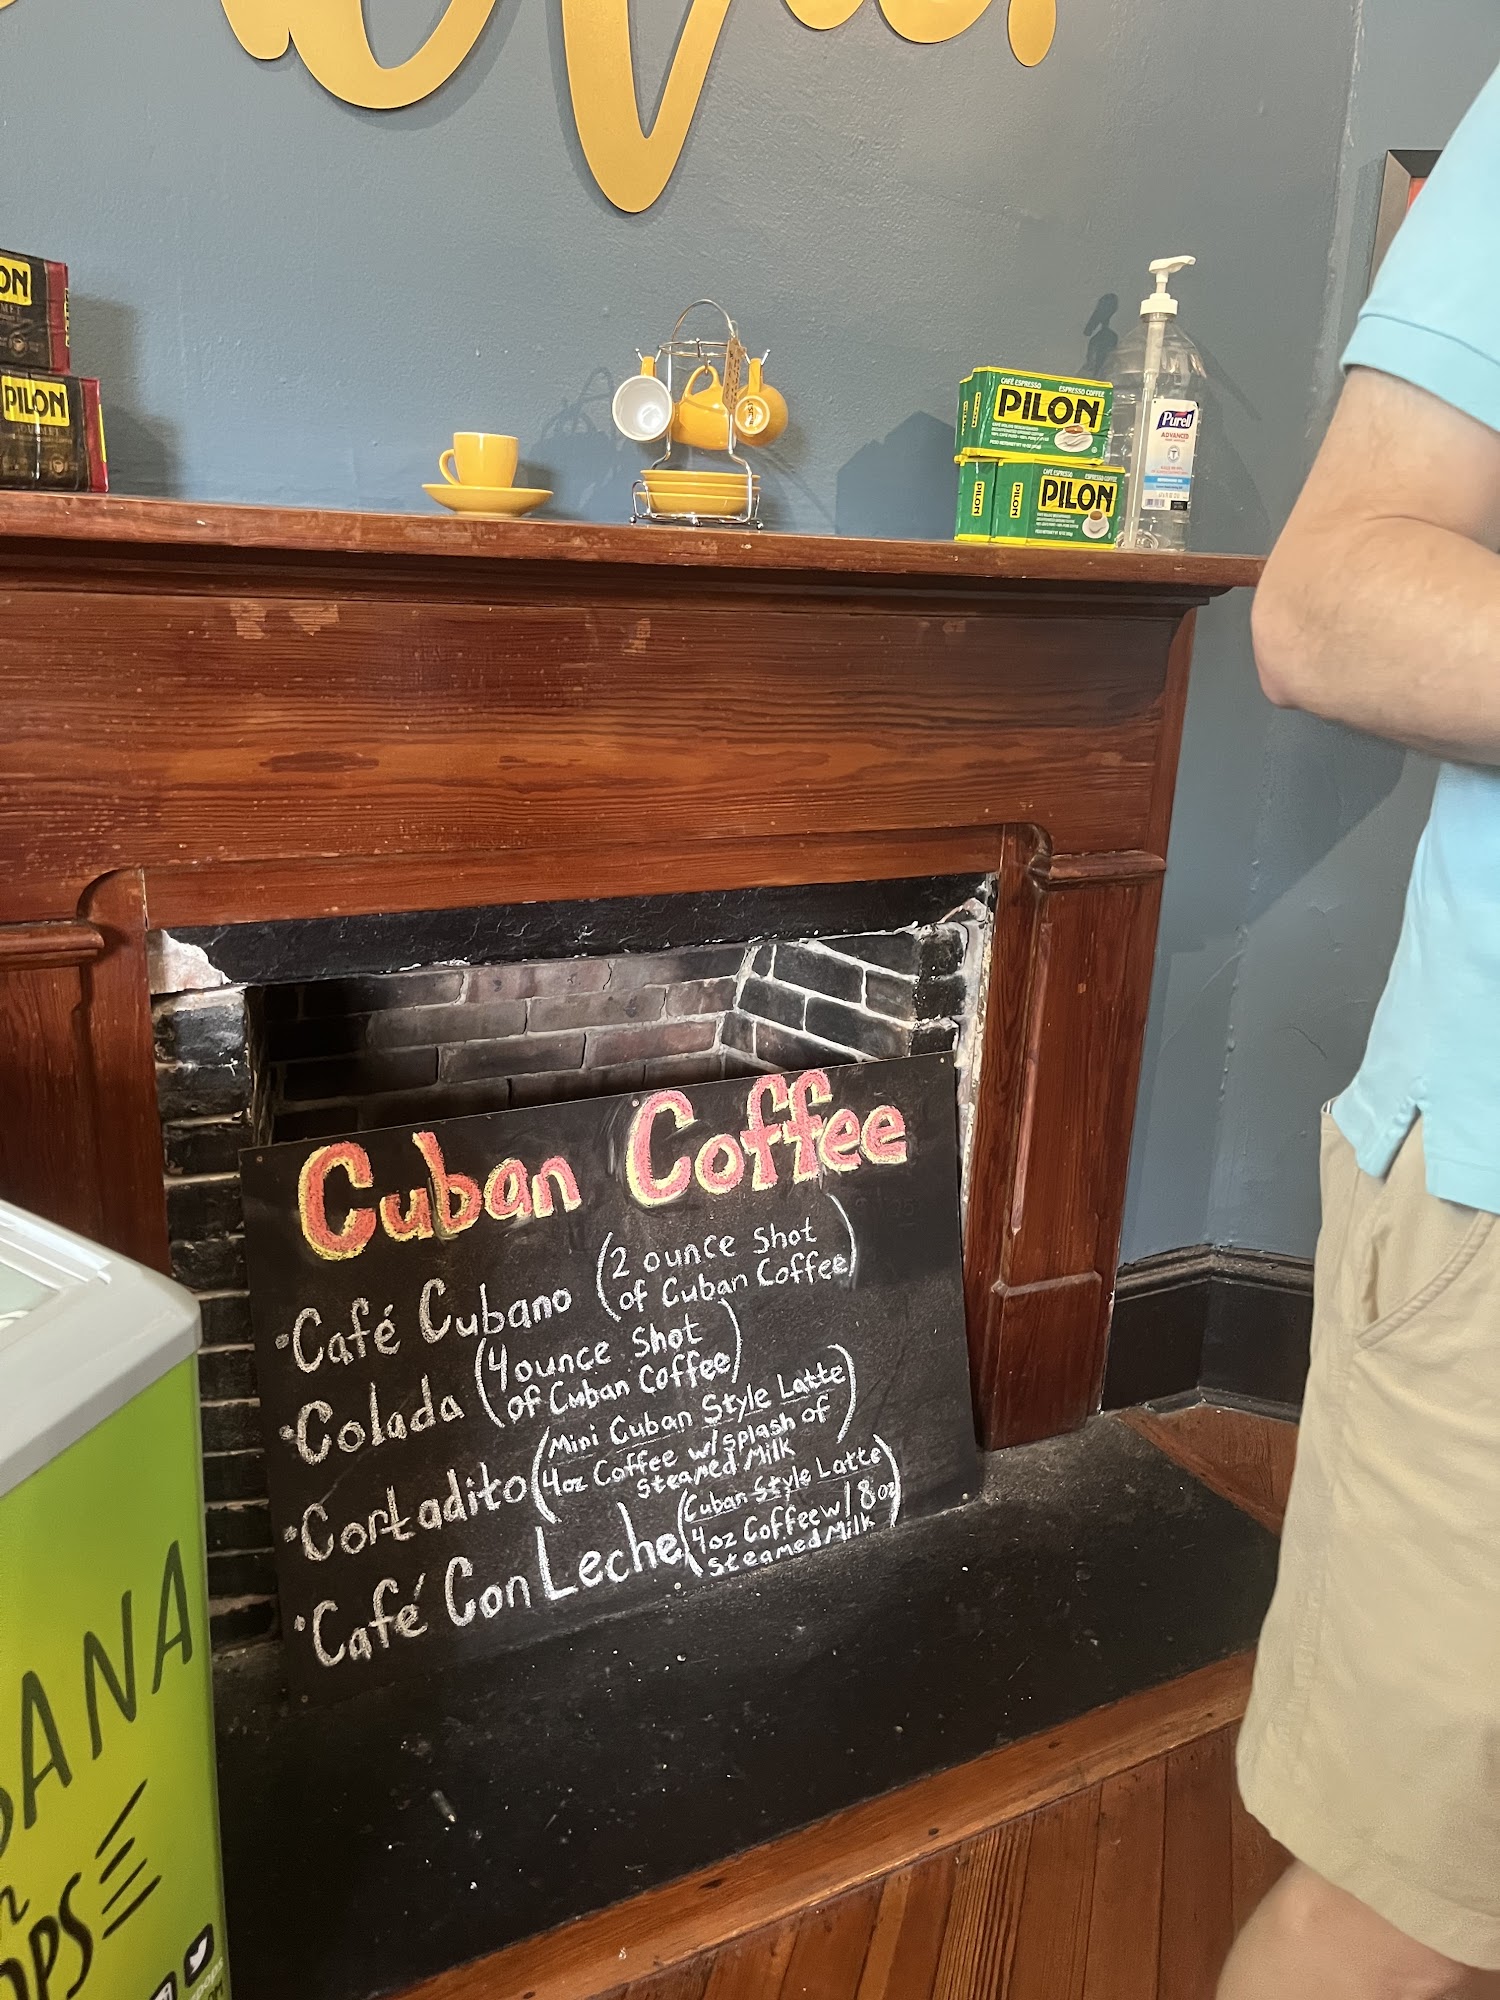 PILON
CAFÉ ESPRESSO ESPRESSO COFFEE
PILON
PILON
CAFÉ ESPRESSO ESPRESSO COFFEE
PILON
PILON
Purell
ADVANCED
Cuban Coffee
•Café Cubano (2 ounce Shot
of Cuban Coffee)
•Colada (4 ounce Shot
of Cuban Coffee)
•Cortadito (Mini Cuban Style Latte
4oz Coffee w/ splash of
Steamed Milk)
•Café Con Leche (Cuban Style Latte
4oz Coffee w/ 8oz
Steamed Milk)